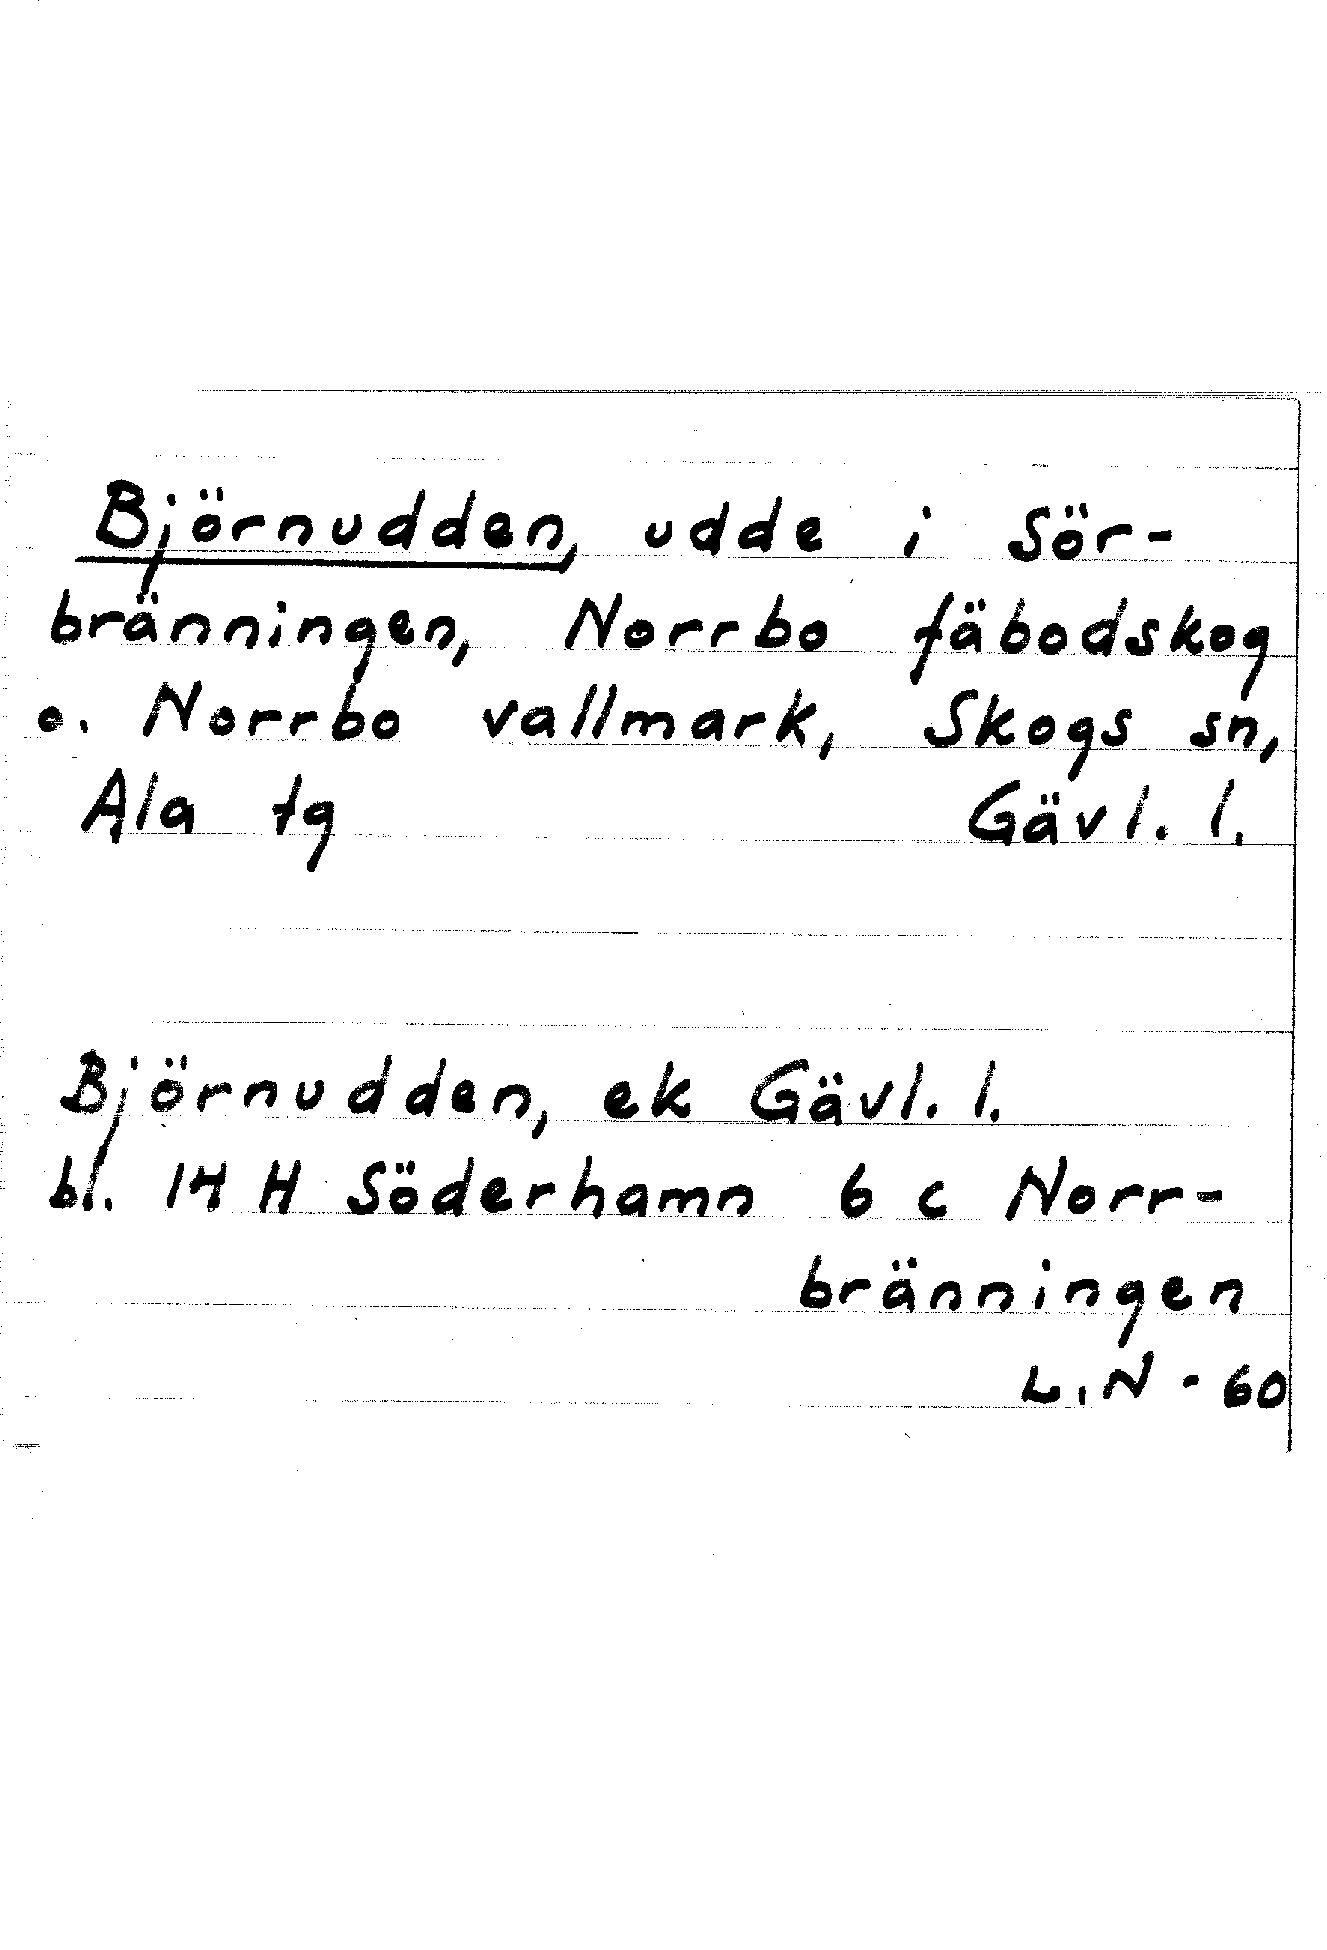 Björnudden, udde i Sör-
bränningen, Norrbo fäbodskog
o. Norrbo vallmark, Skogs sn,
Ala tg Gävl. l.
Björnudden, ek Gävl. l.
bl. 14 H Söderhamn 6 c Norr-
bränningen
L.N - 60